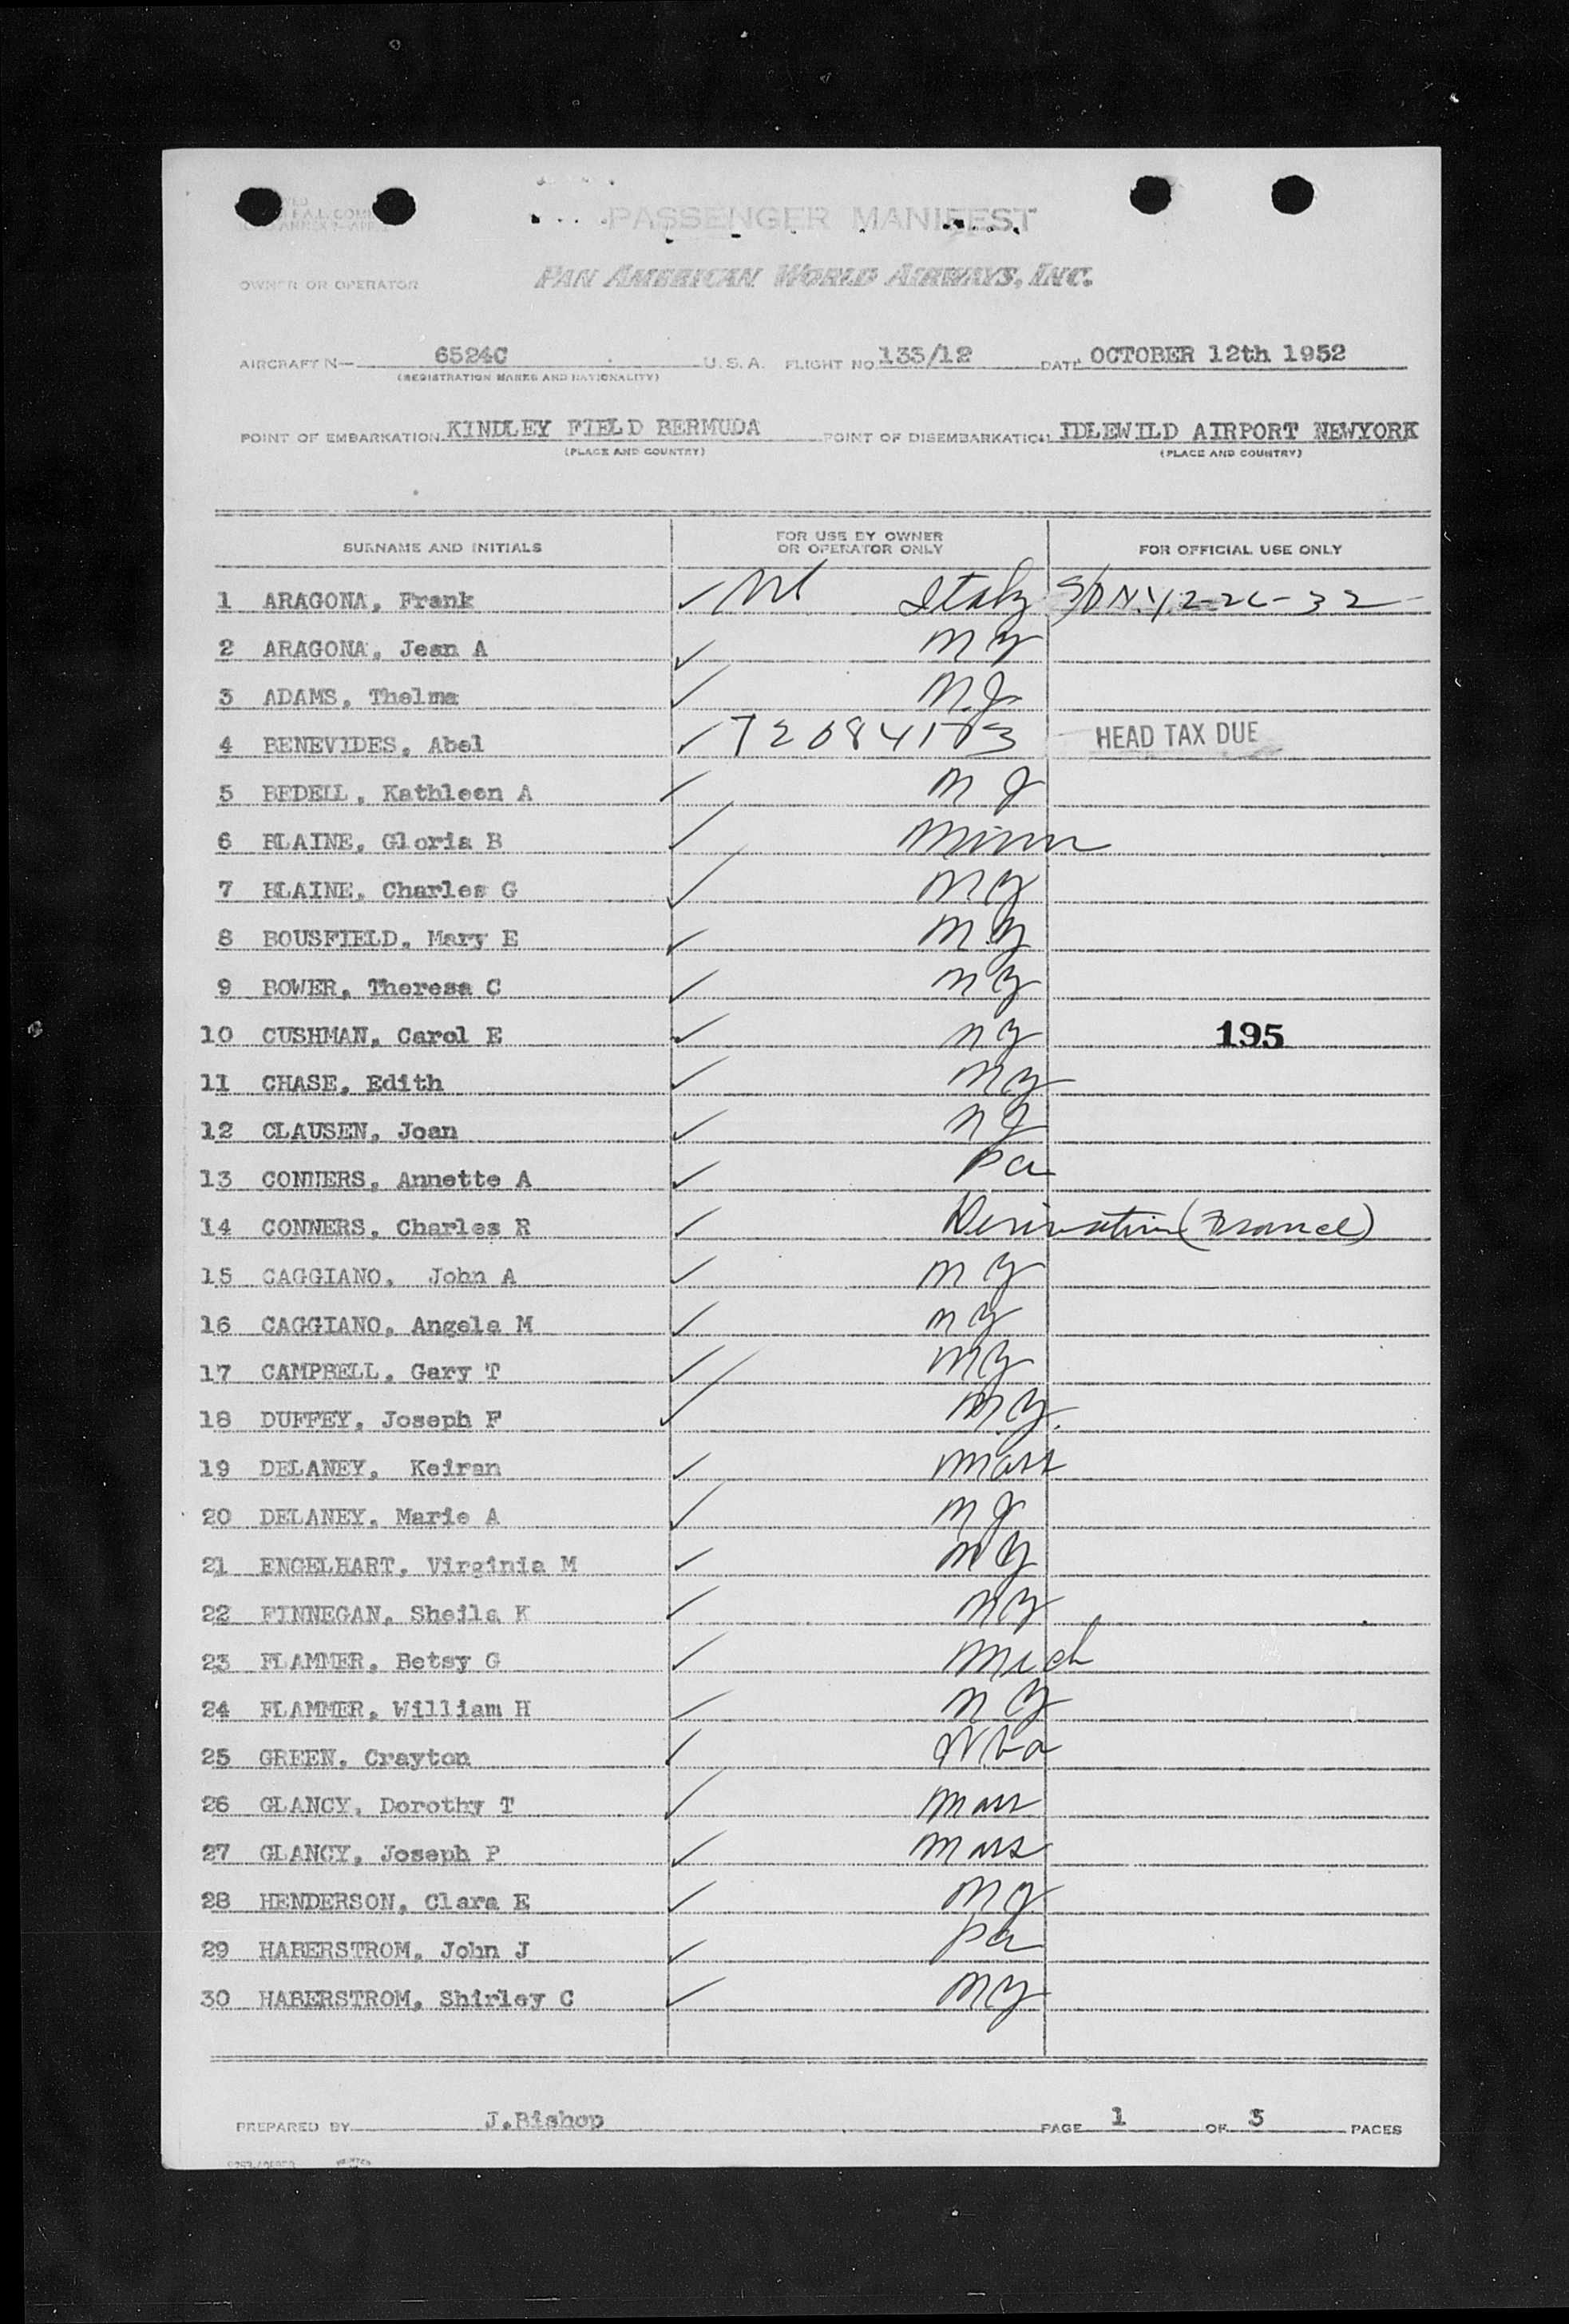 PASSENGER MANIFEST
OWNER OR OPERATOR PAN AMERICAN WORLD AIRWAYS, INC.
AIRCRAFT N— 6524C U.S.A. FLIGHT NO 133/12 DATE OCTOBER 12th 1952
(REGISTRATION MARKS AND NATIONALITY)
POINT OF EMBARKATION KINDLEY FIELD BERMUDA POINT OF DISEMBARKATION IDLEWILD AIRPORT NEWYORK
(PLACE AND COUNTRY) (PLACE AND COUNTRY)
SURNAME AND INITIALS FOR USE BY OWNER OR OPERATOR ONLY FOR OFFICIAL USE ONLY
1 ARAGONA, Frank ✓ Italy
2 ARAGONA, Jean A ✓ NY
3 ADAMS, Thelma ✓ N.J.
4 BENEVIDES, Abel ✓ HEAD TAX DUE
5 BEDELL, Kathleen A ✓ NJ
6 BLAINE, Gloria B ✓ Minn
7 BLAINE, Charles G ✓ NY
8 BOUSFIELD, Mary E ✓ N.Y
9 BOWER, Theresa C ✓ NY
10 CUSHMAN, Carol E ✓ NY 195
11 CHASE, Edith ✓ NY
12 CLAUSEN, Joan ✓ NJ
13 CONNERS, Annette A ✓ Pa
14 CONNERS, Charles R ✓ Derivative (France)
15 CAGGIANO, John A ✓ NY
16 CAGGIANO, Angela M ✓ NY
17 CAMPBELL, Gary T ✓ NY
18 DUFFEY, Joseph F ✓ N.Y.
19 DELANEY, Keiran ✓ Mass
20 DELANEY, Marie A ✓ NJ
21 ENGELHART, Virginia M ✓ NY
22 FINNEGAN, Sheila K ✓ NY
23 FLAMMER, Betsy G ✓ Mich
24 FLAMMER, William H ✓ NY
25 GREEN, Crayton ✓
26 GLANCY, Dorothy T ✓ Mass
27 GLANCY, Joseph P ✓ Mass
28 HENDERSON, Clara E ✓ NY
29 HABERSTROM, John J ✓ Pa
30 HABERSTROM, Shirley C ✓ NY
PREPARED BY J.Bishop PAGE 1 OF 3 PAGES